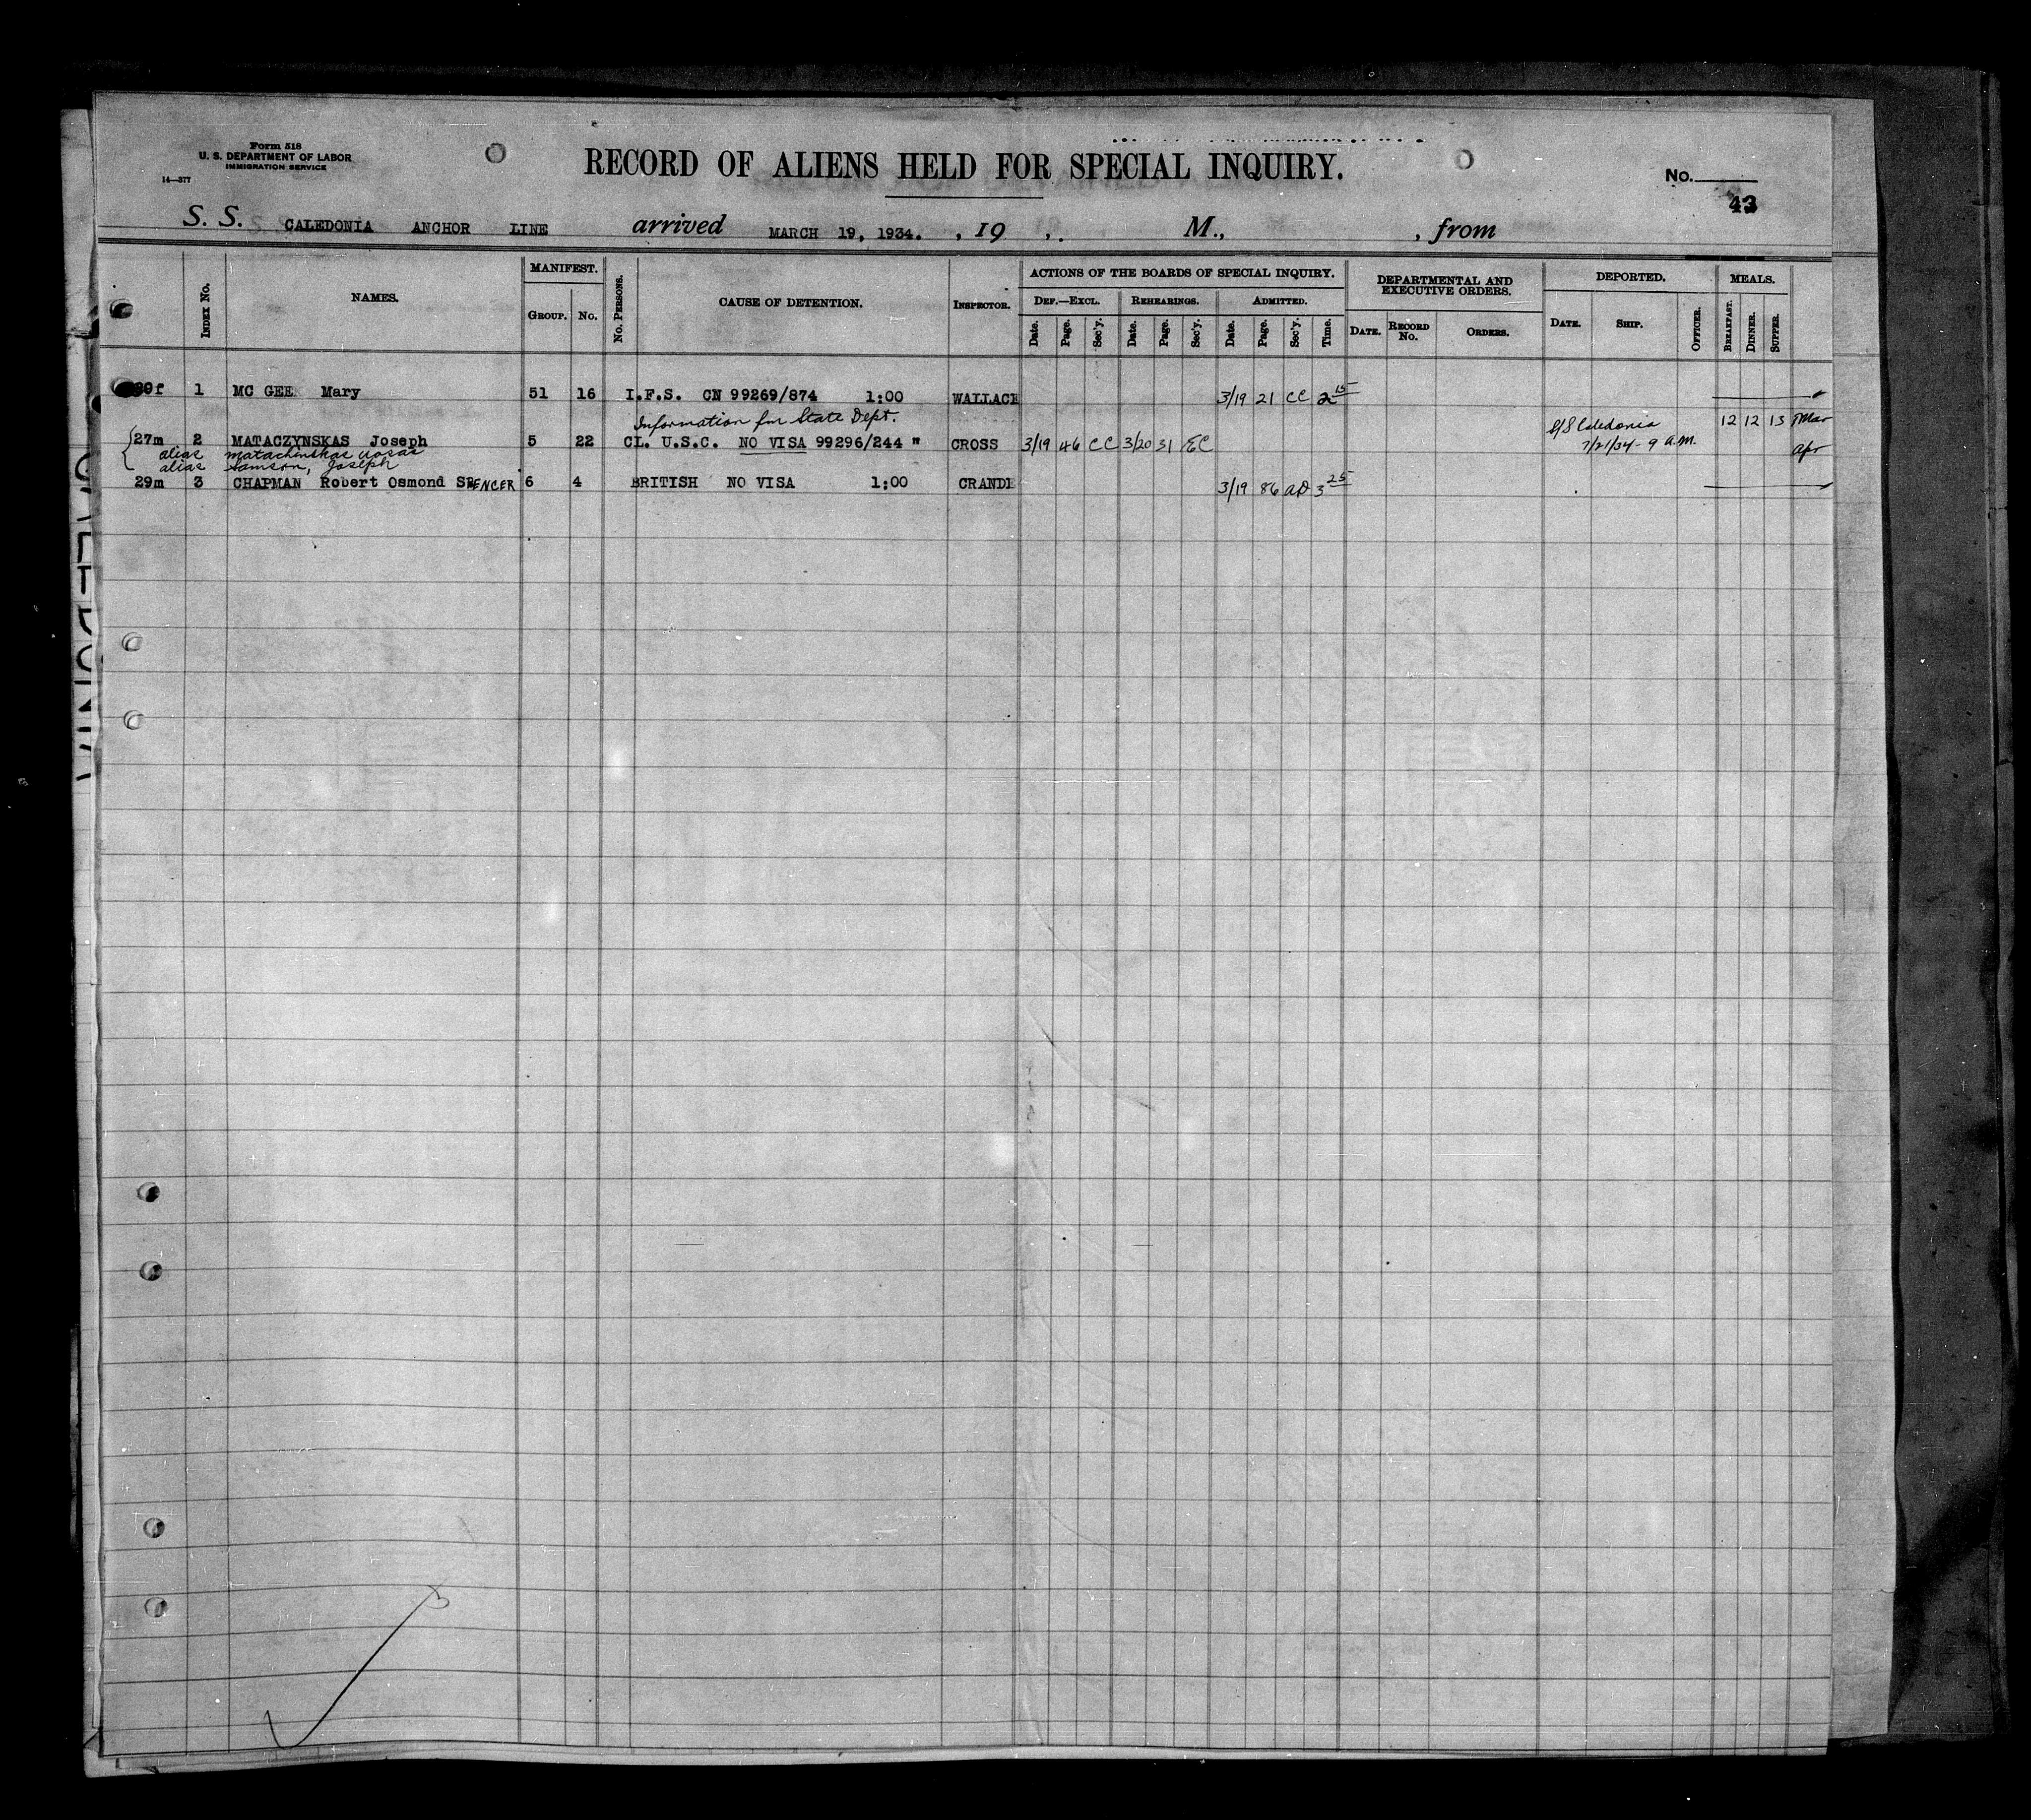 Form 518
U. S. DEPARTMENT OF LABOR
IMMIGRATION SERVICE
14—577
RECORD OF ALIENS HELD FOR SPECIAL INQUIRY.
No.
43
S. S. CALEDONIA ANCHOR LINE arrived MARCH 19, 1934. , 19 , . M., , from
INDEX No. NAMES. MANIFEST. GROUP. No. No. PERSONS. CAUSE OF DETENTION. INSPECTOR. ACTIONS OF THE BOARDS OF SPECIAL INQUIRY. DEPARTMENTAL AND EXECUTIVE ORDERS. DEPORTED. MEALS.
DEF.—EXCL. REHEARINGS. ADMITTED.
Date. Page. Sec'y. Date. Page. Sec'y. Date. Page. Sec'y. Time. DATE. RECORD No. ORDERS. DATE. SHIP. OFFICER. BREAKFAST. DINNER. SUPPER.
1 MC GEE Mary 51 16 I.F.S. CN 99269/874 1:00 WALLACE 3/19 21 CC 2 15
Information fm State Dept. S/S Caledonia 12 12 13 Mar
27m 2 MATACZYNSKAS Joseph 5 22 CL. U.S.C. NO VISA 99296/244 " CROSS 3/19 46 CC 3/20 31 EC 7/21/34 - 9 A.M. Apr
alias Matachinskas
alias Samson, Joseph
29m 3 CHAPMAN Robert Osmond SPENCER 6 4 BRITISH NO VISA 1:00 CRANDE 3/19 86 AD 3 25